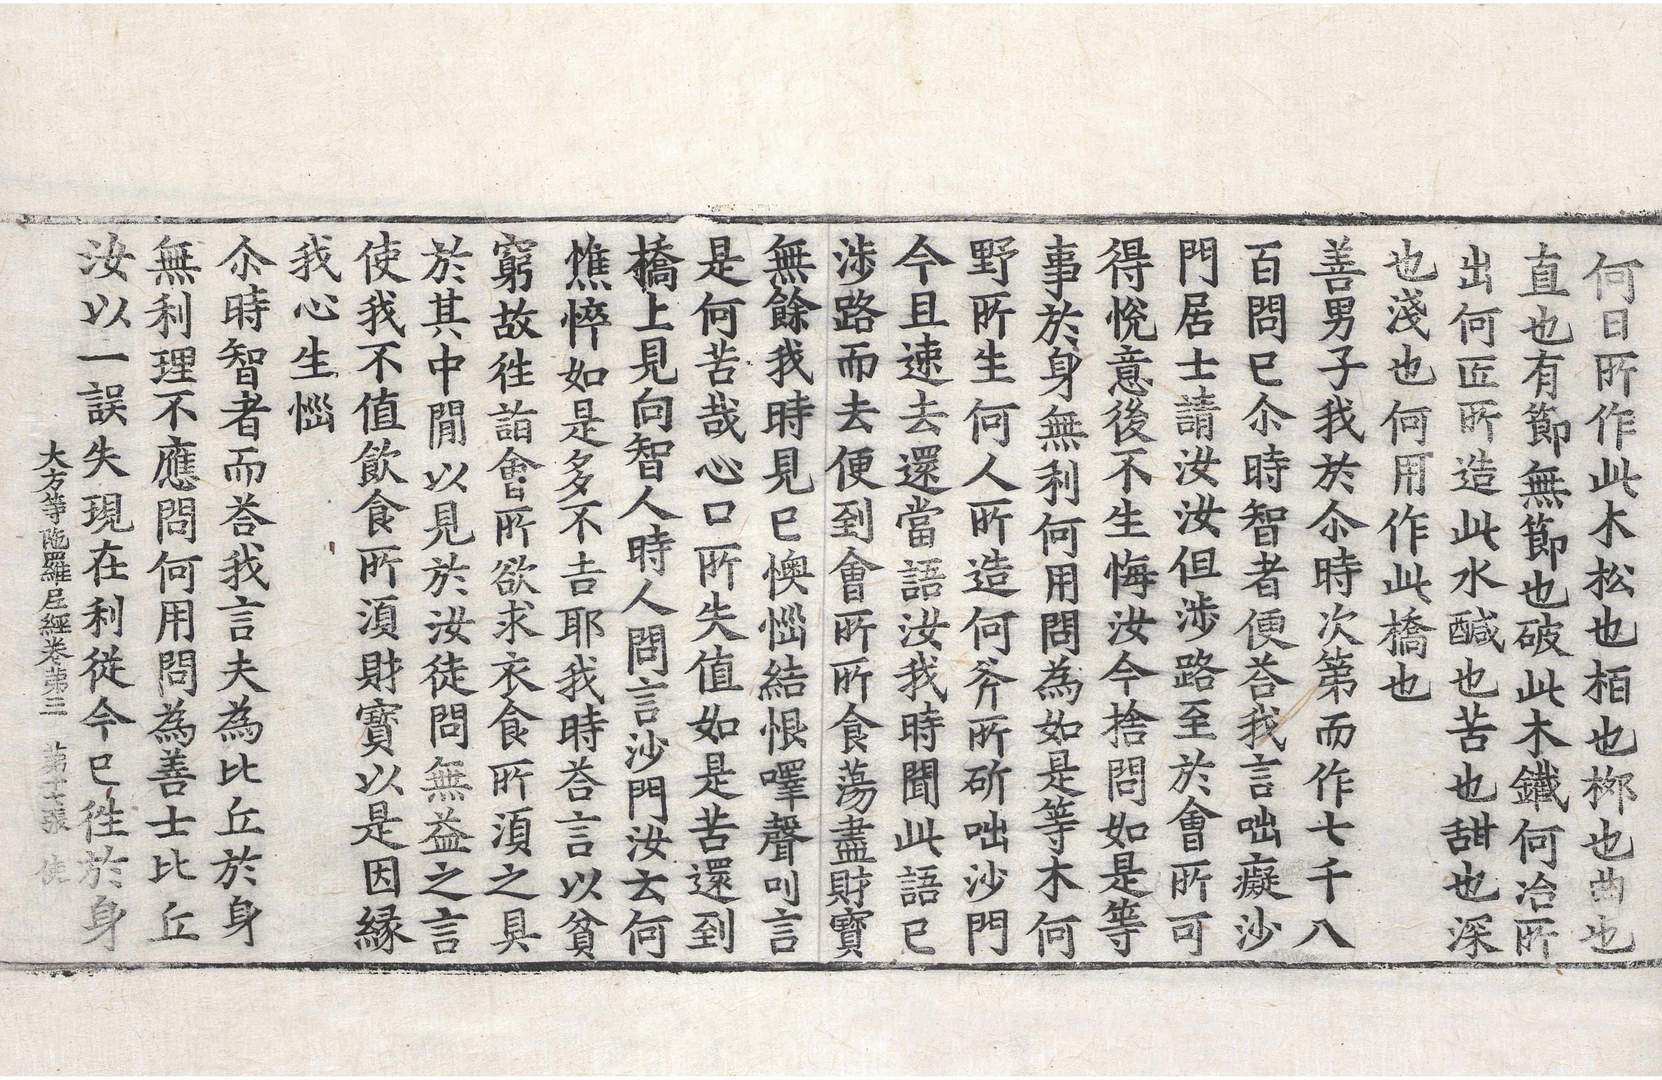 何日所作此木松也栢也㮈也曲也
直也有節無節也破此木鐵何冶所
出何匠所造此水醎也苦也甜也深
也淺也何用作此橋也
善男子我於尒時次第而作七千八
百問已尒時智者便荅我言咄癡沙
門居士請汝汝但涉路至於會所可
得悅意後不生悔汝今捨問如是等
事於身無利何用問為如是等木何
野所生何人所造何斧所斫咄沙門
今且速去還當語汝我時聞此語已
涉路而去便到會所所食蕩盡財寶
無餘我時見已懊惱結恨嘷聲叫言
是何苦哉心口所失值如是苦還到
橋上見向智人時人問言沙門汝去何
憔悴如是多不吉耶我時荅言以貧
窮故徃詣會所欲求衣食所湏之具
於其中閒以見於汝徒問無益之言
使我不值飲食所湏財寶以是因緣
我心生惱
尒時智者而荅我言夫為比丘於身
無利理不應問何用問為善士比丘
汝以一誤失現在利從今已徃於身
大方等陁羅尼經卷第三　第十七張　使